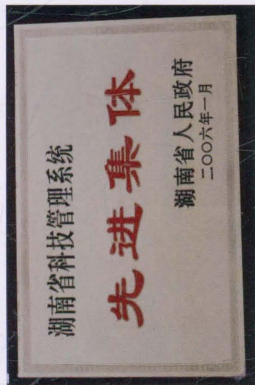 湖南省科技管理系统
先进集体
湖南省人民政府
二〇〇六年一月